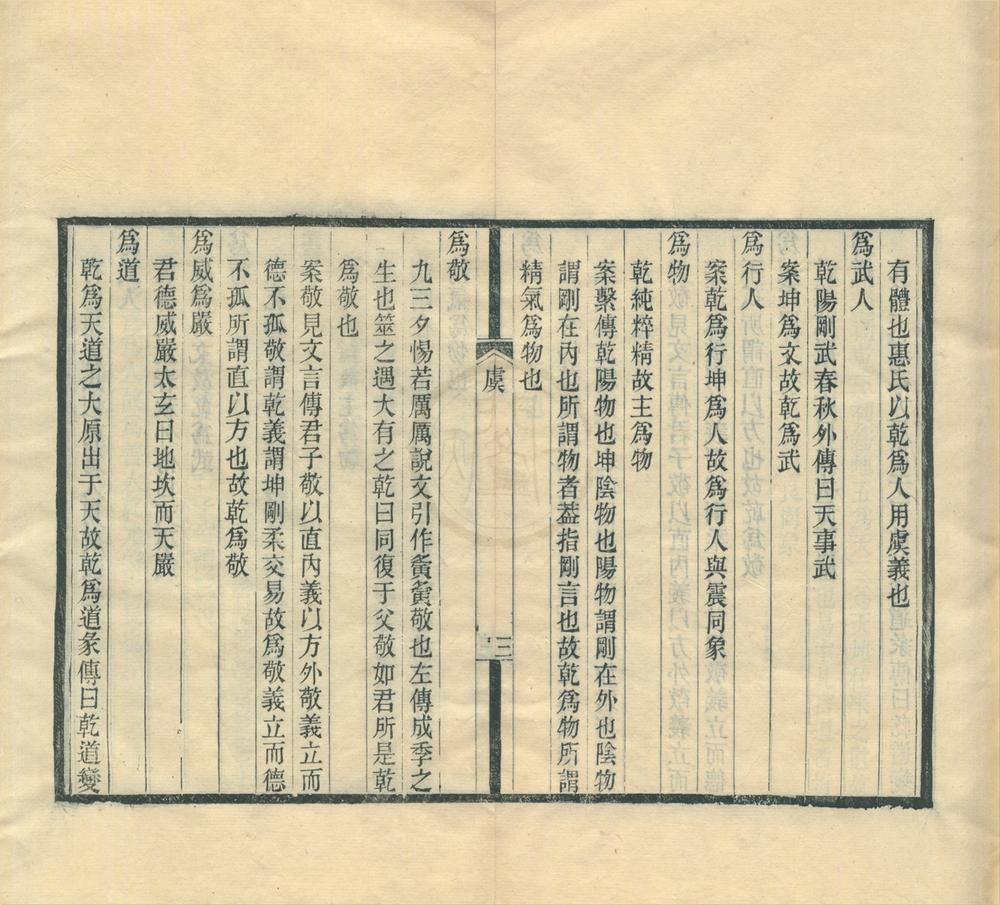 有體也惠氏以乾爲人用虞義也
爲武人
乾陽剛武春秋外傳曰天事武
案坤爲文故乾爲武
爲行人
案乾爲行坤爲人故爲行人與震同象
爲物
乾純粹精故主爲物
案繫傳乾陽物也坤陰物也陽物謂剛在外也陰物
謂剛在內也所謂物者葢指剛言也故乾爲物所謂
精氣爲物也
虞
三
爲敬
九三夕惕若厲厲說文引作夤夤敬也左傳成季之
生也筮之遇大有之乾曰同復于父敬如君所是乾
爲敬也
案敬見文言傳君子敬以直內義以方外敬義立而
德不孤敬謂乾義謂坤剛柔交易故爲敬義立而德
不孤所謂直以方也故乾爲敬
爲威爲嚴
君德威嚴太玄曰地坎而天嚴
爲道
乾爲天道之大原出于天故乾爲道彖傳曰乾道變